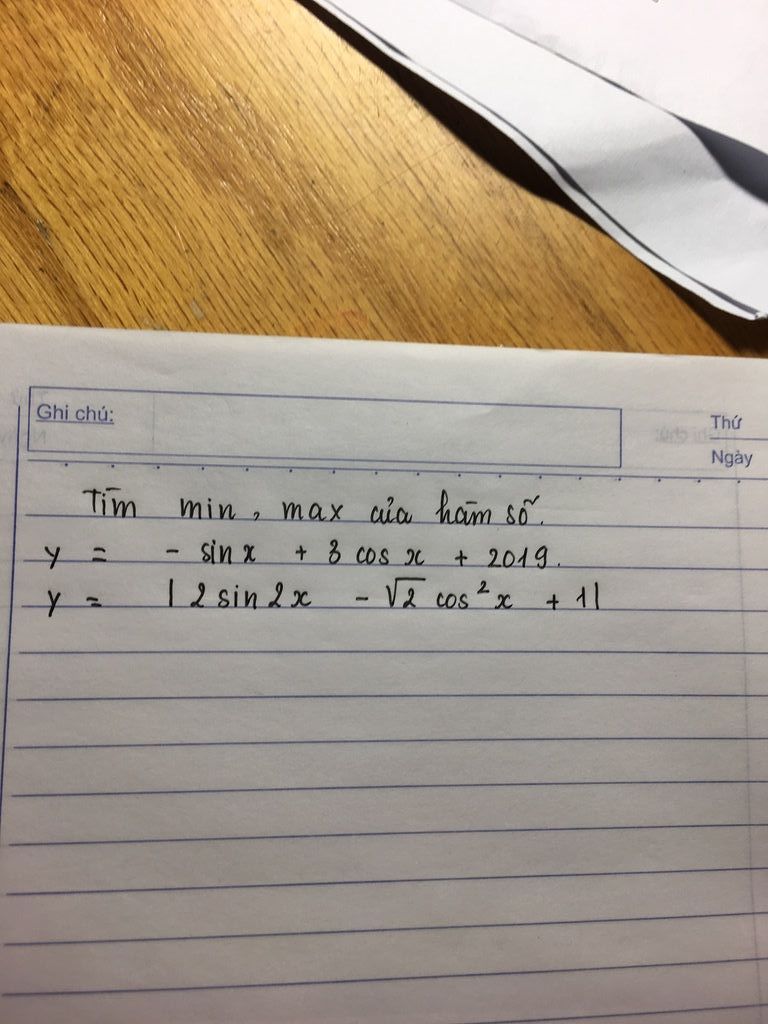 Ghi chú:
Thứ
Ngày
Tìm min, max của hàm số.
y = - sin x + 3 cos x + 2019.
y = | 2 sin 2x - √2 cos²x + 1|